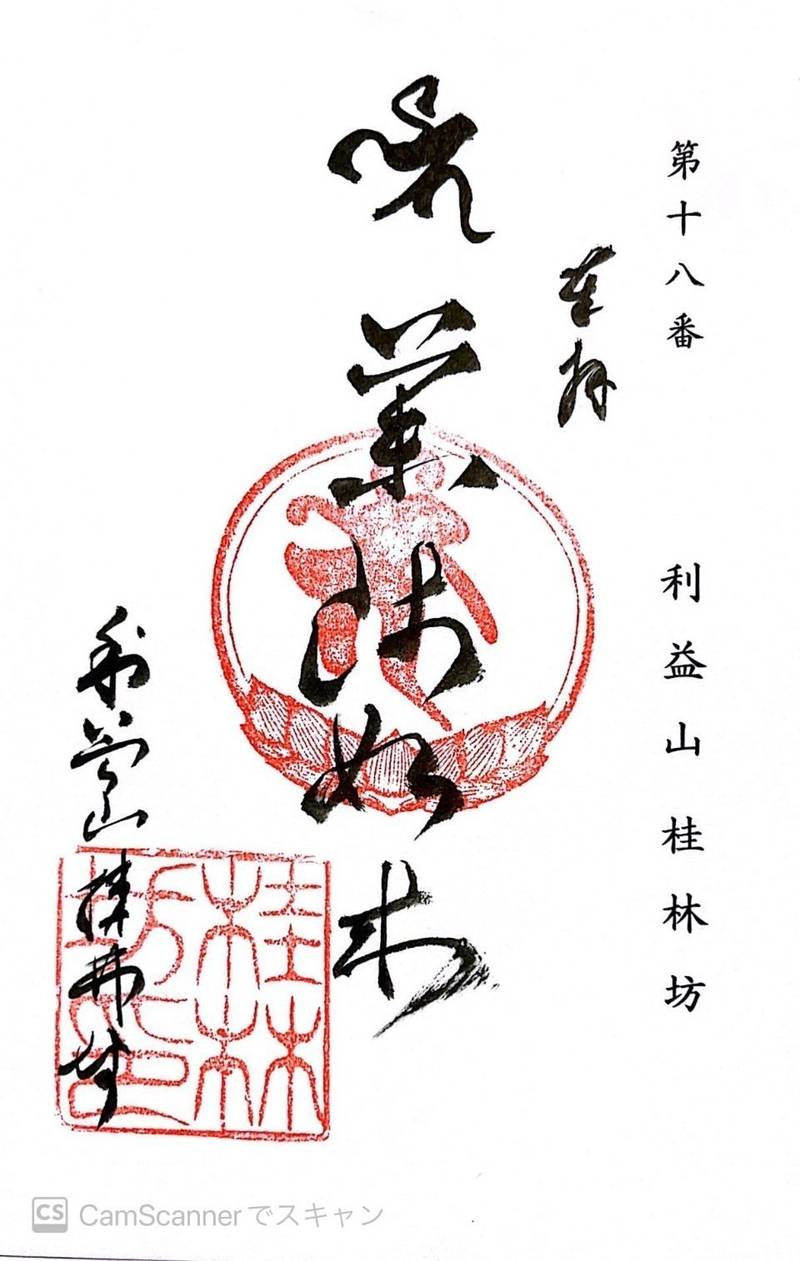 第十八番 利益山 桂林坊
奉拝
薬師如来
利益山 桂林坊
桂林
坊印
CS CamScannerでスキャン